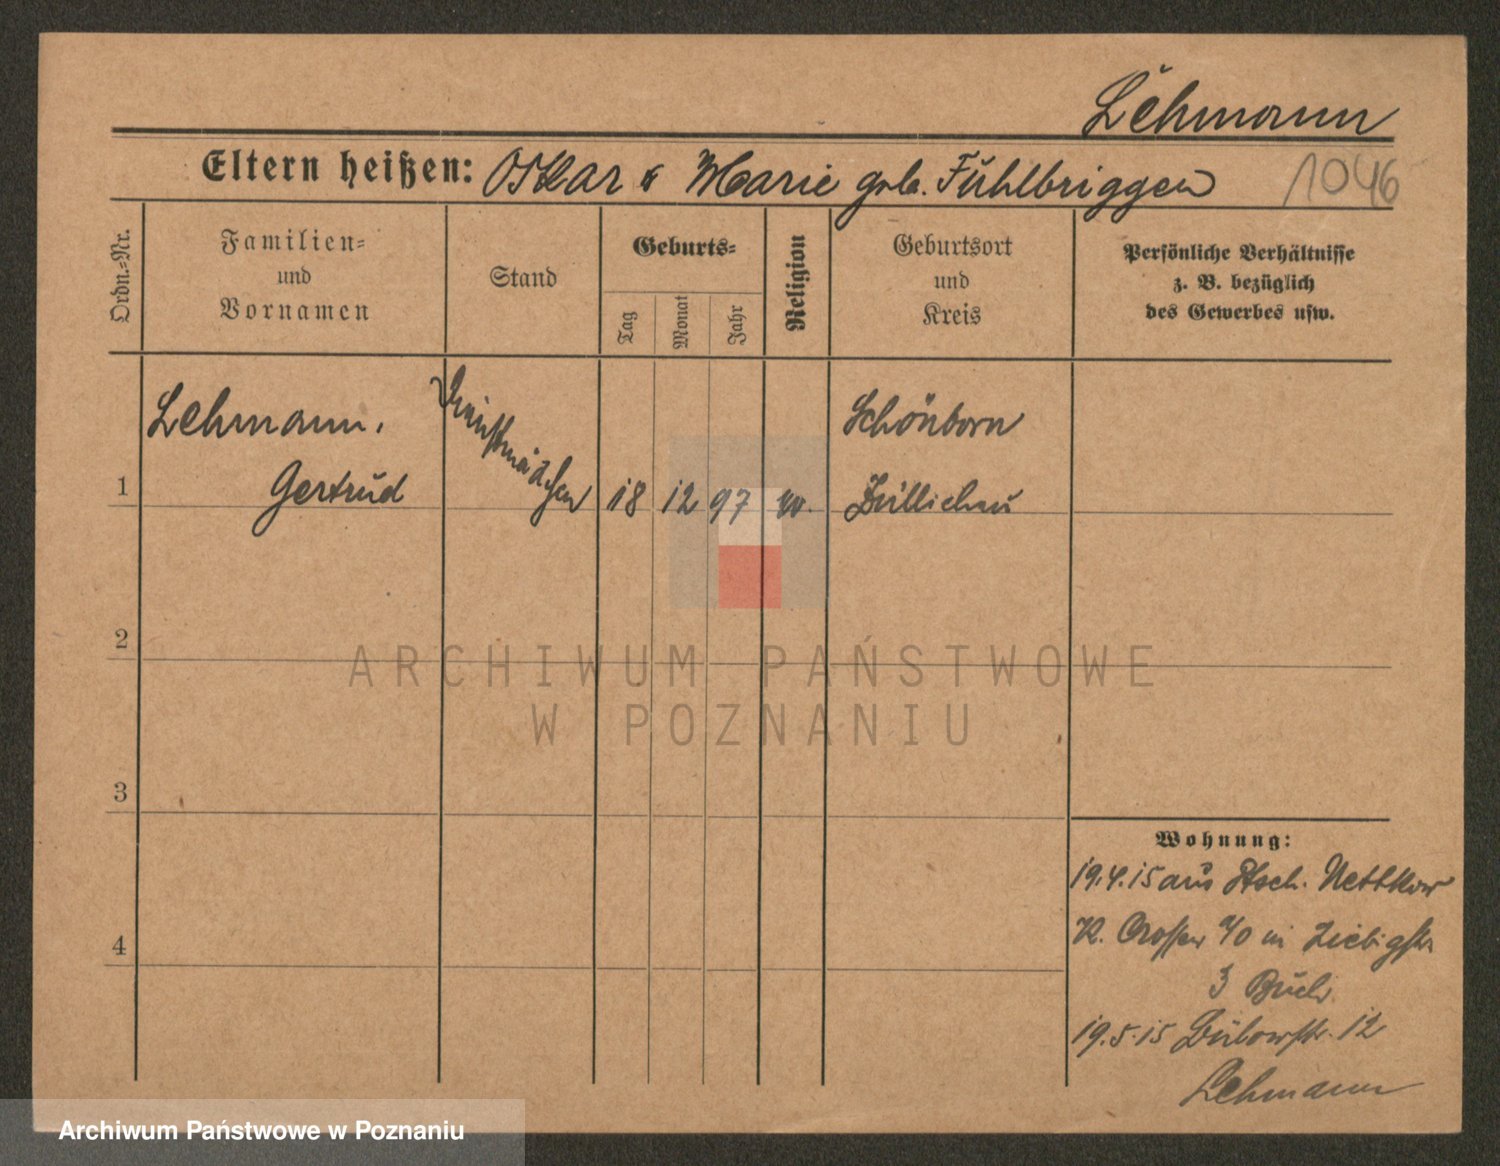 Lehmann
Eltern heißen: Oskar & Marie geb. Fühlbriggen
1046
Ordn.-Nr.
Familien-
und
Vornamen
Stand
Geburts-
Tag
Monat
Jahr
Religion
Geburtsort
und
Kreis
Persönliche Verhältnisse
z. B. bezüglich
des Gewerbes usw.
Lehmann,
Gertrud
Dienstmädchen
Schönborn
1
18
12
97
ev.
Züllichau
2
ARCHIWUM PAŃSTWOWE
W POZNANIU
3
Wohnung:
19.4.15 aus Dtsch. Nettkow
K. Crossen a/O in Liebigstr.
4
3
19.5.15 Bülowstr. 12
Lehmann
Archiwum Państwowe w Poznaniu